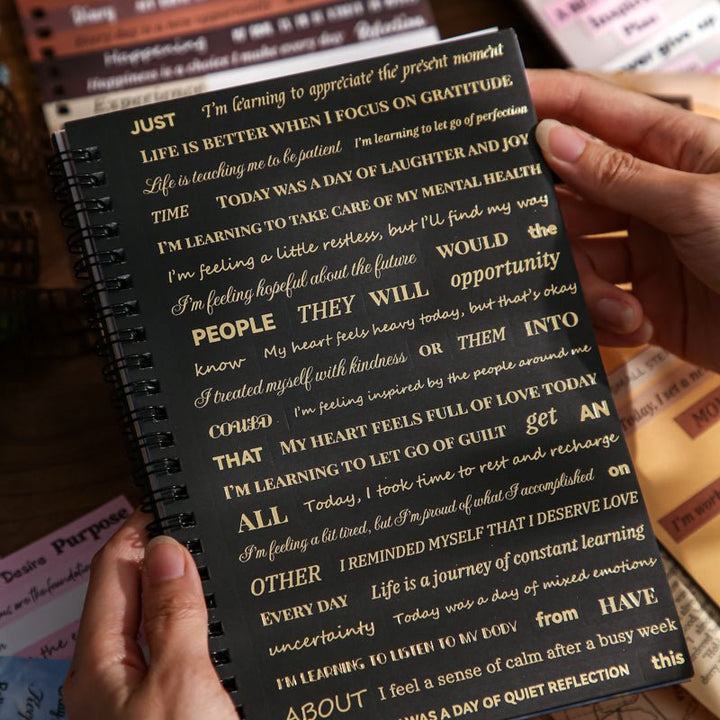 Diary
Happening
Reflection
Happiness is a choice I make every day
Experience
JUST I'm learning to appreciate the present moment
LIFE IS BETTER WHEN I FOCUS ON GRATITUDE
Life is teaching me to be patient I'm learning to let go of perfection
TIME TODAY WAS A DAY OF LAUGHTER AND JOY
I'M LEARNING TO TAKE CARE OF MY MENTAL HEALTH
I'm feeling a little restless, but I'll find my way
I'm feeling hopeful about the future WOULD the
PEOPLE THEY WILL opportunity
know My heart feels heavy today, but that's okay
I treated myself with kindness OR THEM INTO
COULD I'm feeling inspired by the people around me
THAT MY HEART FEELS FULL OF LOVE TODAY
I'M LEARNING TO LET GO OF GUILT get AN
ALL Today, I took time to rest and recharge
I'm feeling a bit tired, but I'm proud of what I accomplished on
OTHER I REMINDED MYSELF THAT I DESERVE LOVE
EVERY DAY Life is a journey of constant learning
uncertainty Today was a day of mixed emotions
I'M LEARNING TO LISTEN TO MY BODY from HAVE
ABOUT I feel a sense of calm after a busy week
WAS A DAY OF QUIET REFLECTION this
Desire Purpose
are the foundation
the
never give up
SMALL
Today, I set a
I'm